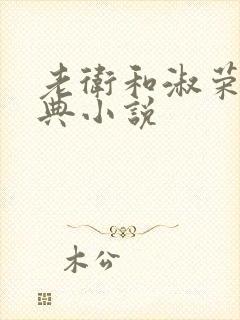 老衛和淑荣
典小説
木公